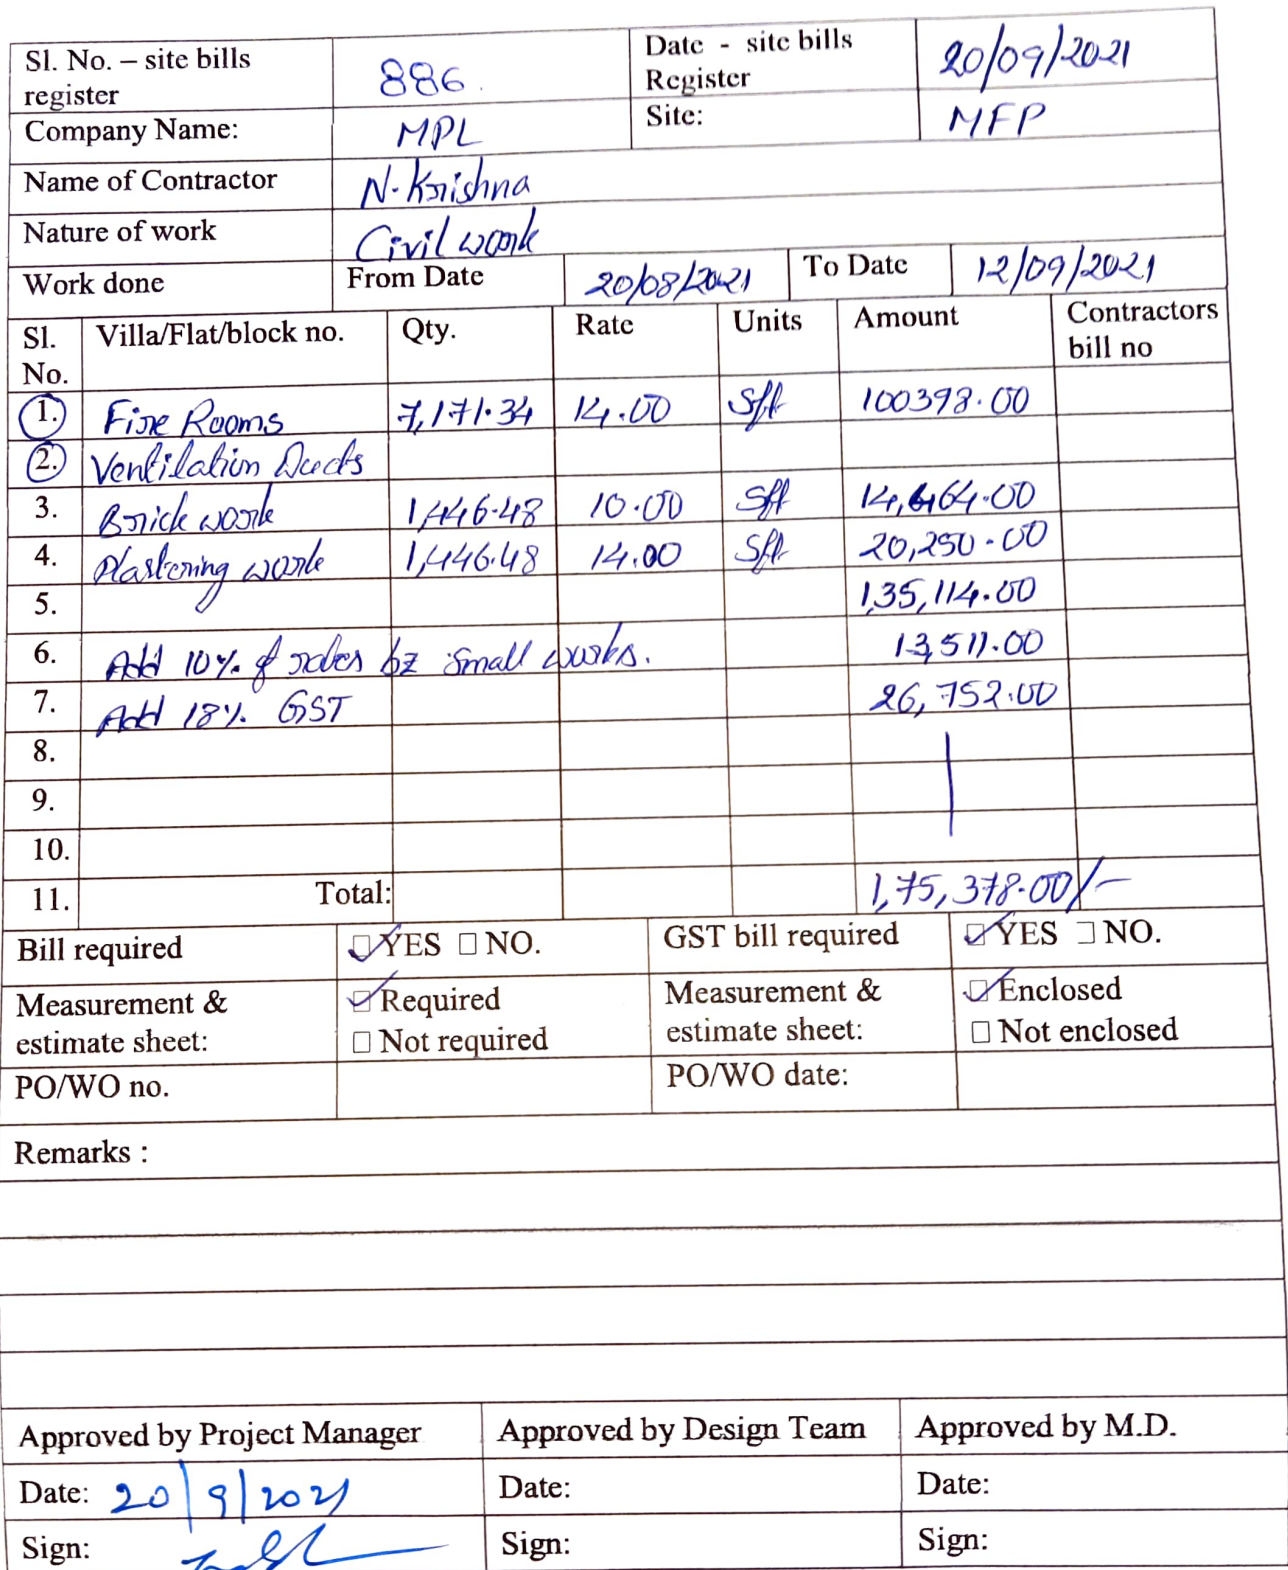 Sl. No. – site bills register 886. Date - site bills Register 20/09/2021
Company Name: MPL Site: MFP
Name of Contractor N. Krishna
Nature of work Civil work
Work done From Date 20/08/2021 To Date 12/09/2021
Sl. No. Villa/Flat/block no. Qty. Rate Units Amount Contractors bill no
1. Fire Rooms 7,171.34 14.00 Sft 100398.00
2. Ventilation Ducts
3. Brick work 1,446.48 10.00 Sft 14,464.00
4. Plastering work 1,446.48 14.00 Sft 20,250.00
5. 1,35,114.00
6. Add 10% of rates bz small works. 13,511.00
7. Add 18% GST 26,752.00
8.
9.
10.
11. Total: 1,75,378.00/-
Bill required YES NO. GST bill required YES NO.
Measurement & estimate sheet: Required Not required Measurement & estimate sheet: Enclosed Not enclosed
PO/WO no. PO/WO date:
Remarks :
Approved by Project Manager Approved by Design Team Approved by M.D.
Date: 20/9/2021 Date: Date:
Sign: Sign: Sign: